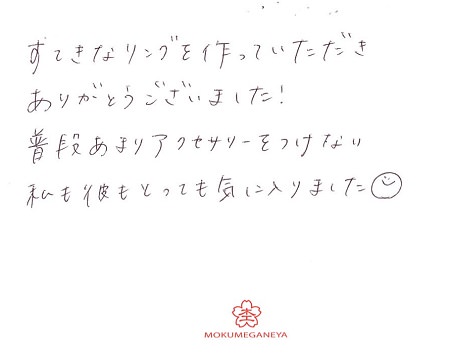 すてきなリングを作っていただき
ありがとうございました!
普段あまりアクセサリーをつけない
私も彼もとっても気に入りました
MOKUMEGANEYA